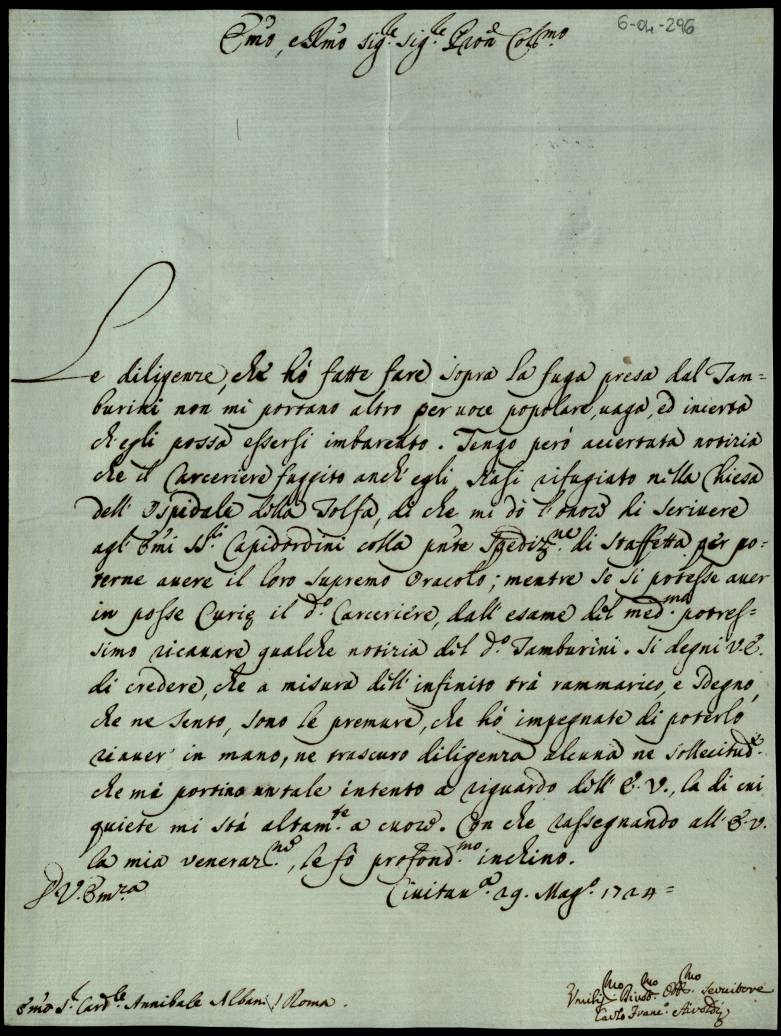 6-04-296
Em̃o, e Rm̃o Sig.re Sig.re Pron̄e Col̃mo
Le diligenze, che hò fatte fare sopra la fuga presa dal Tam=
burini non mi portano altro per voce popolare, vaga, ed incerta
ch'egli possa essersi imbarcato. Tengo però accertata notizia
che il Carceriere fuggito anch'egli, siasi rifugiato nella Chiesa
dell'Ospidale della Tolfa, di che mi dò l'onore di scrivere
agl'Em̃i SS.ri Capidordini colla pñte Spediz.ne di Staffetta per po=
terne avere il loro supremo Oracolo; mentre se si potesse aver
in posse Curię il d.o Carceriere, dall'esame del med.mo potres=
simo ricavare qualche notizia del d.o Tamburini. Si degni V.E.
di credere, che a misura dell'infinito trà rammarico, e sdegno,
che ne sento, sono le premure, che hò impegnate di poterlo
riaver in mano, ne trascuro diligenza alcuna ne sollecitud.e
che mi portino un tale intento a riguardo dell'E.V., la di cui
quiete mi stà altam.te a cuore. Con che rassegnando all'E.V.
la mia veneraz.ne, le fò profond.mo inchino.
D V. Em̃za
Civitav.a 29. Mag.o 1724=
Em̃o S.r Card.le Annibale Albani / Roma.
Umiliss.mo Divot.mo Obb.mo Servitore
Carlo Franc.o